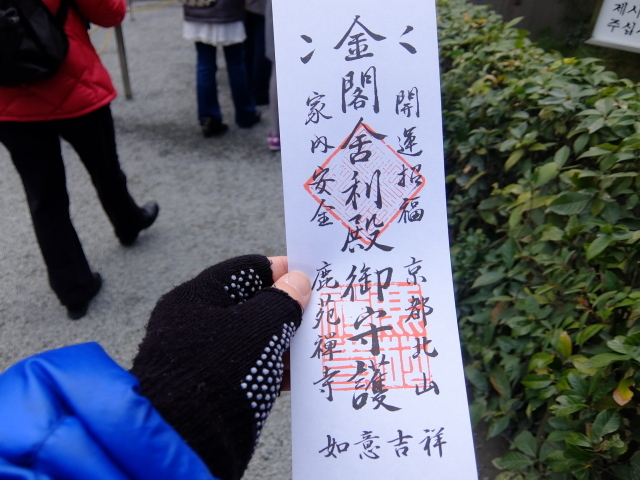 開運招福
京都北山
金閣舎利殿御守護
家内安全
鹿苑禅寺
如意吉祥
제시
주십시